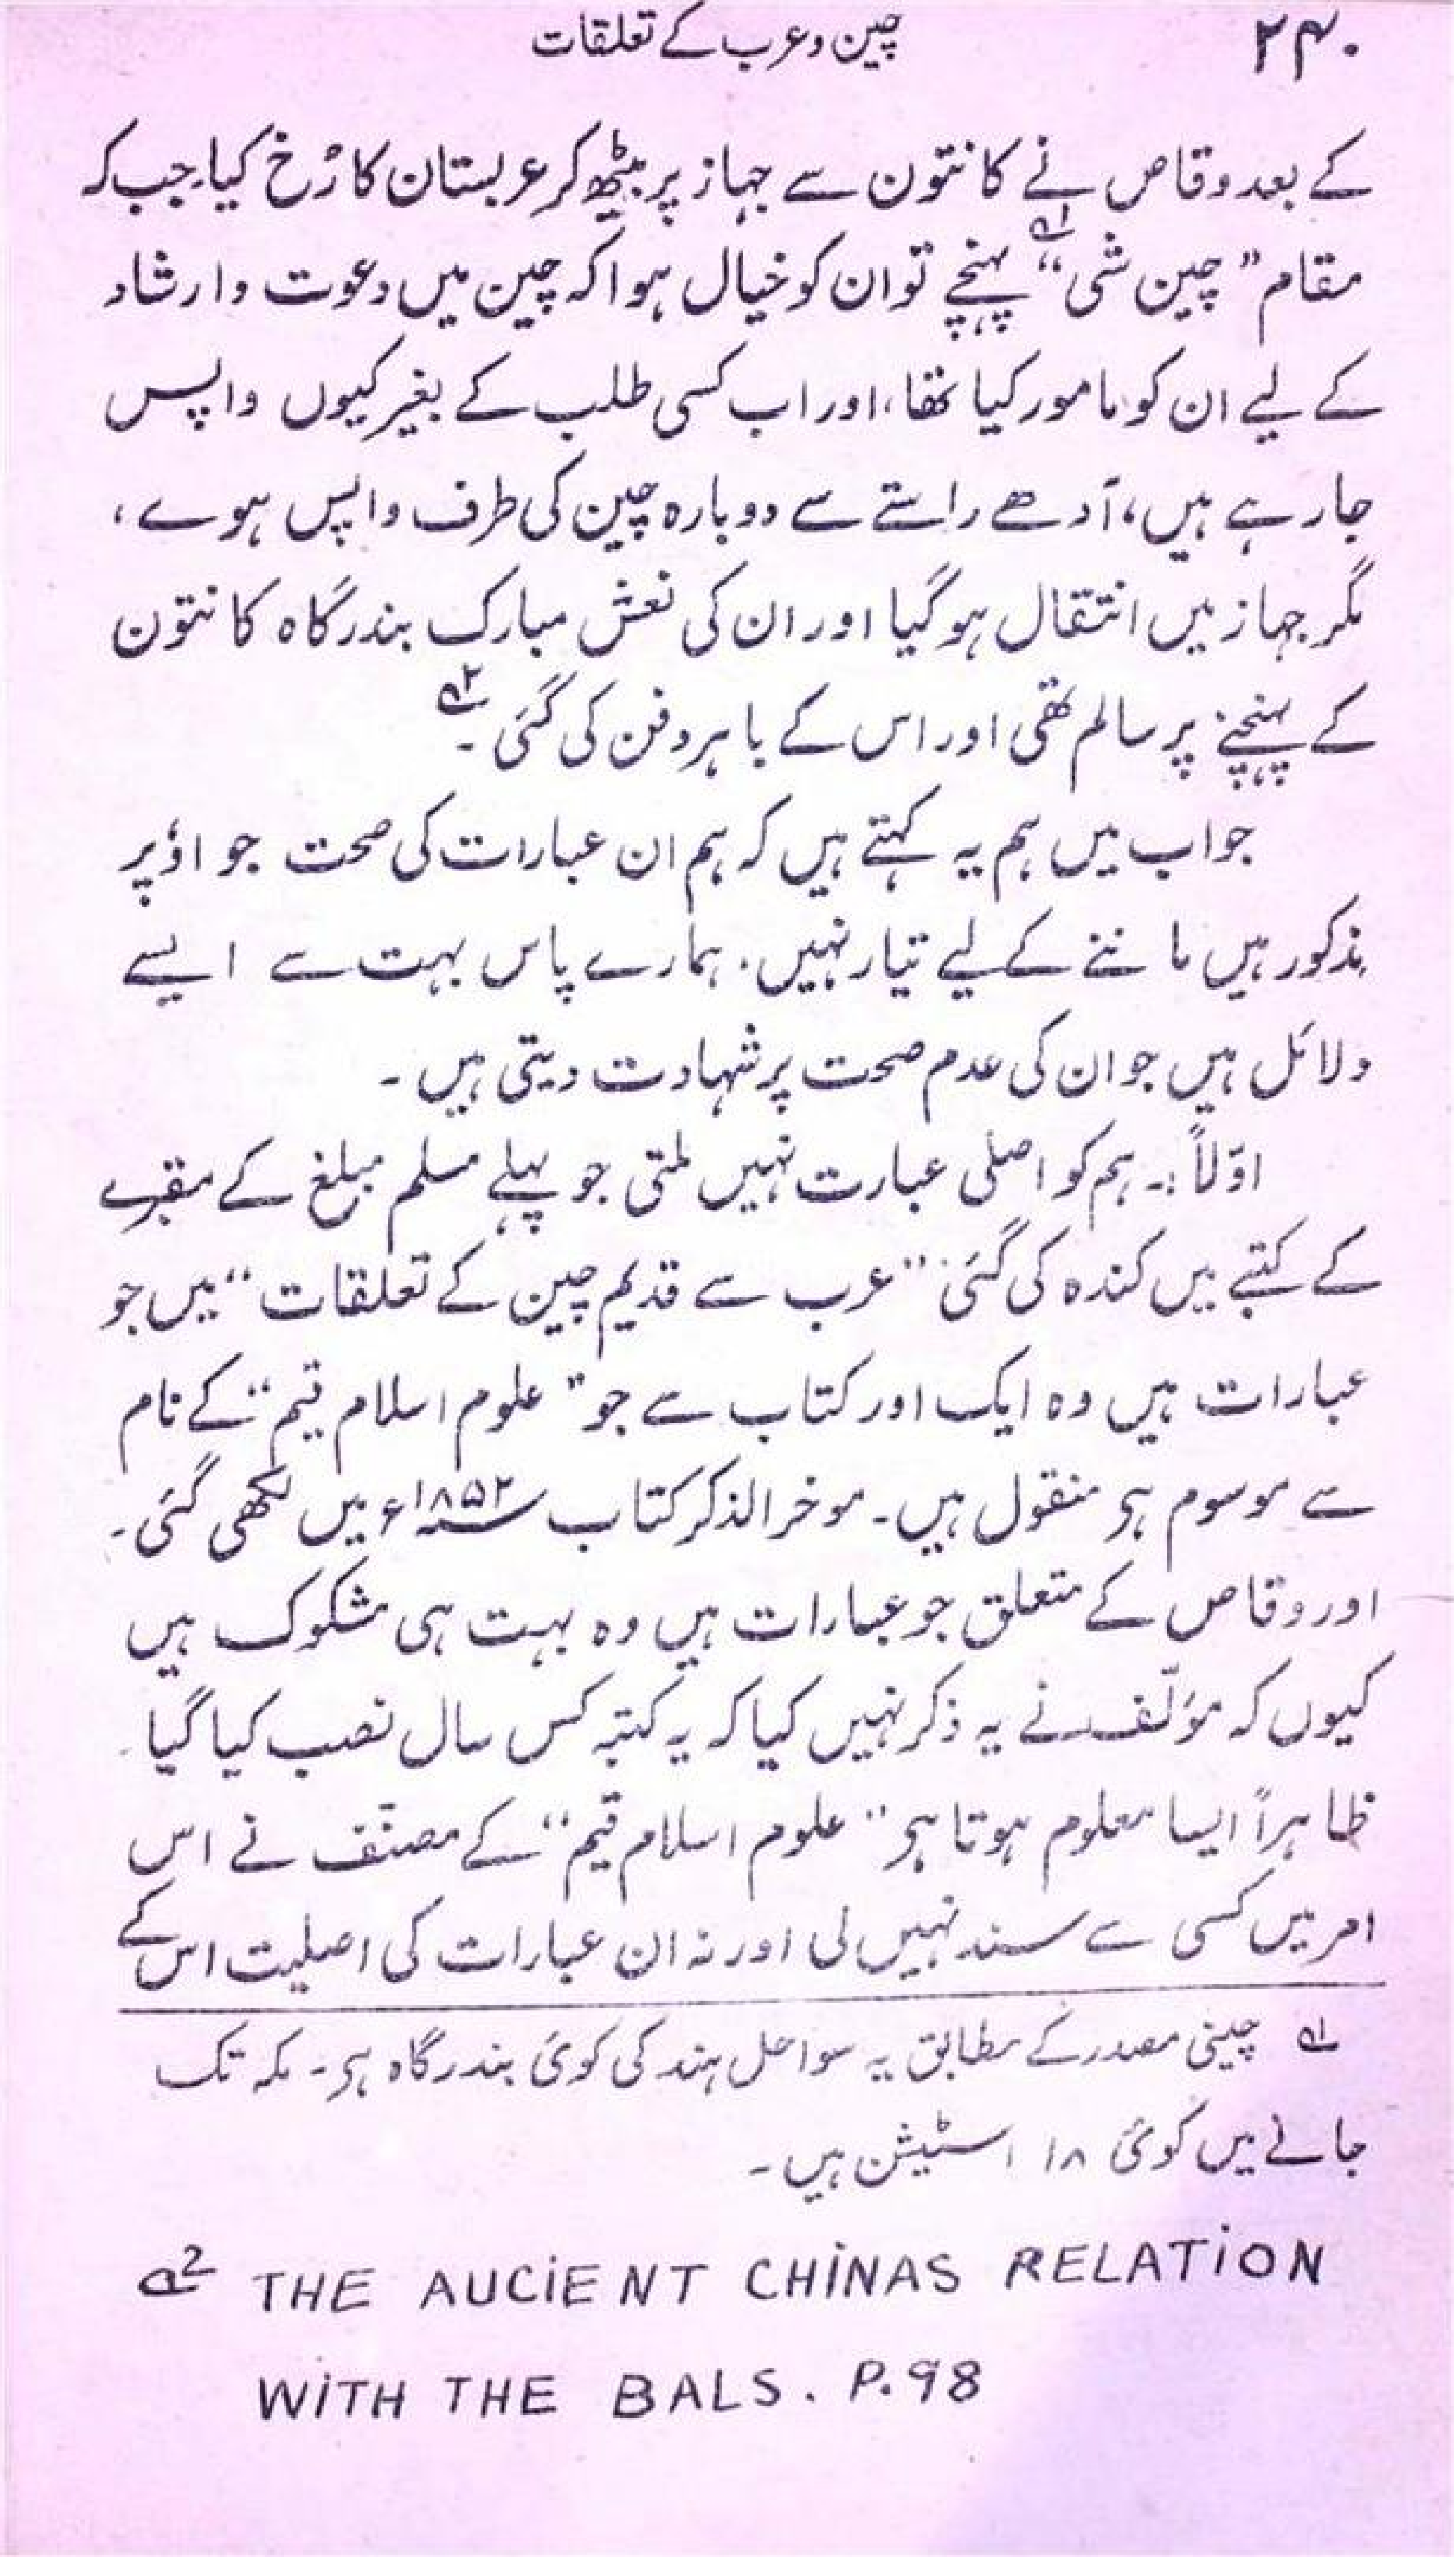 ۲۴۰ چین و عرب کے تعلقات
کے بعد وقاص نے کانتون سے جہاز پر بیٹھ کر عربستان کا رُخ کیا۔ جب کہ
مقام ”چین شی“ ؂۱ پہنچے تو ان کو خیال ہوا کہ چین میں دعوت و ارشاد
کے لیے ان کو مامور کیا تھا، اور اب کسی طلب کے بغیر کیوں واپس
جا رہے ہیں، آدھے راستے سے دوبارہ چین کی طرف واپس ہوے،
مگر جہاز میں انتقال ہوگیا اور ان کی نعش مبارک بندرگاہ کانتون
کے پہنچنے پر سالم تھی اور اس کے باہر دفن کی گئی ؂۲۔
جواب میں ہم یہ کہتے ہیں کہ ہم ان عبارات کی صحت جو اوٗپر
مذکور ہیں ماننے کے لیے تیار نہیں۔ ہمارے پاس بہت سے ایسے
دلائل ہیں جو ان کی عدم صحت پر شہادت دیتی ہیں۔
اوّلاً:۔ ہم کو اصلی عبارت نہیں ملتی جو پہلے مسلم مبلغ کے مقبرے
کے کتبے میں کندہ کی گئی ”عرب سے قدیم چین کے تعلقات“ میں جو
عبارات ہیں وہ ایک اور کتاب سے جو ”علوم اسلام قیم“ کے نام
سے موسوم ہو منقول ہیں۔ موخر الذکر کتاب ۱۸۵۲ء میں لکھی گئی۔
اور وقاص کے متعلق جو عبارات ہیں وہ بہت ہی مشکوک ہیں
کیوں کہ مؤلّف نے یہ ذکر نہیں کیا کہ یہ کتبہ کس سال نصب کیا گیا۔
ظاہراً ایسا معلوم ہوتا ہو ”علوم اسلام قیم“ کے مصنّف نے اس
امر میں کسی سے سند نہیں لی اور نہ ان عبارات کی اصلیت اس کے
؂۱ چینی مصدر کے مطابق یہ سواحل ہند کی کوئی بندرگاہ ہو۔ مکہ تک
جانے میں کوئی ۱۸ اسٹیشن ہیں۔
؂2 THE AUCIENT CHINAS RELATION
WITH THE BALS. P.98